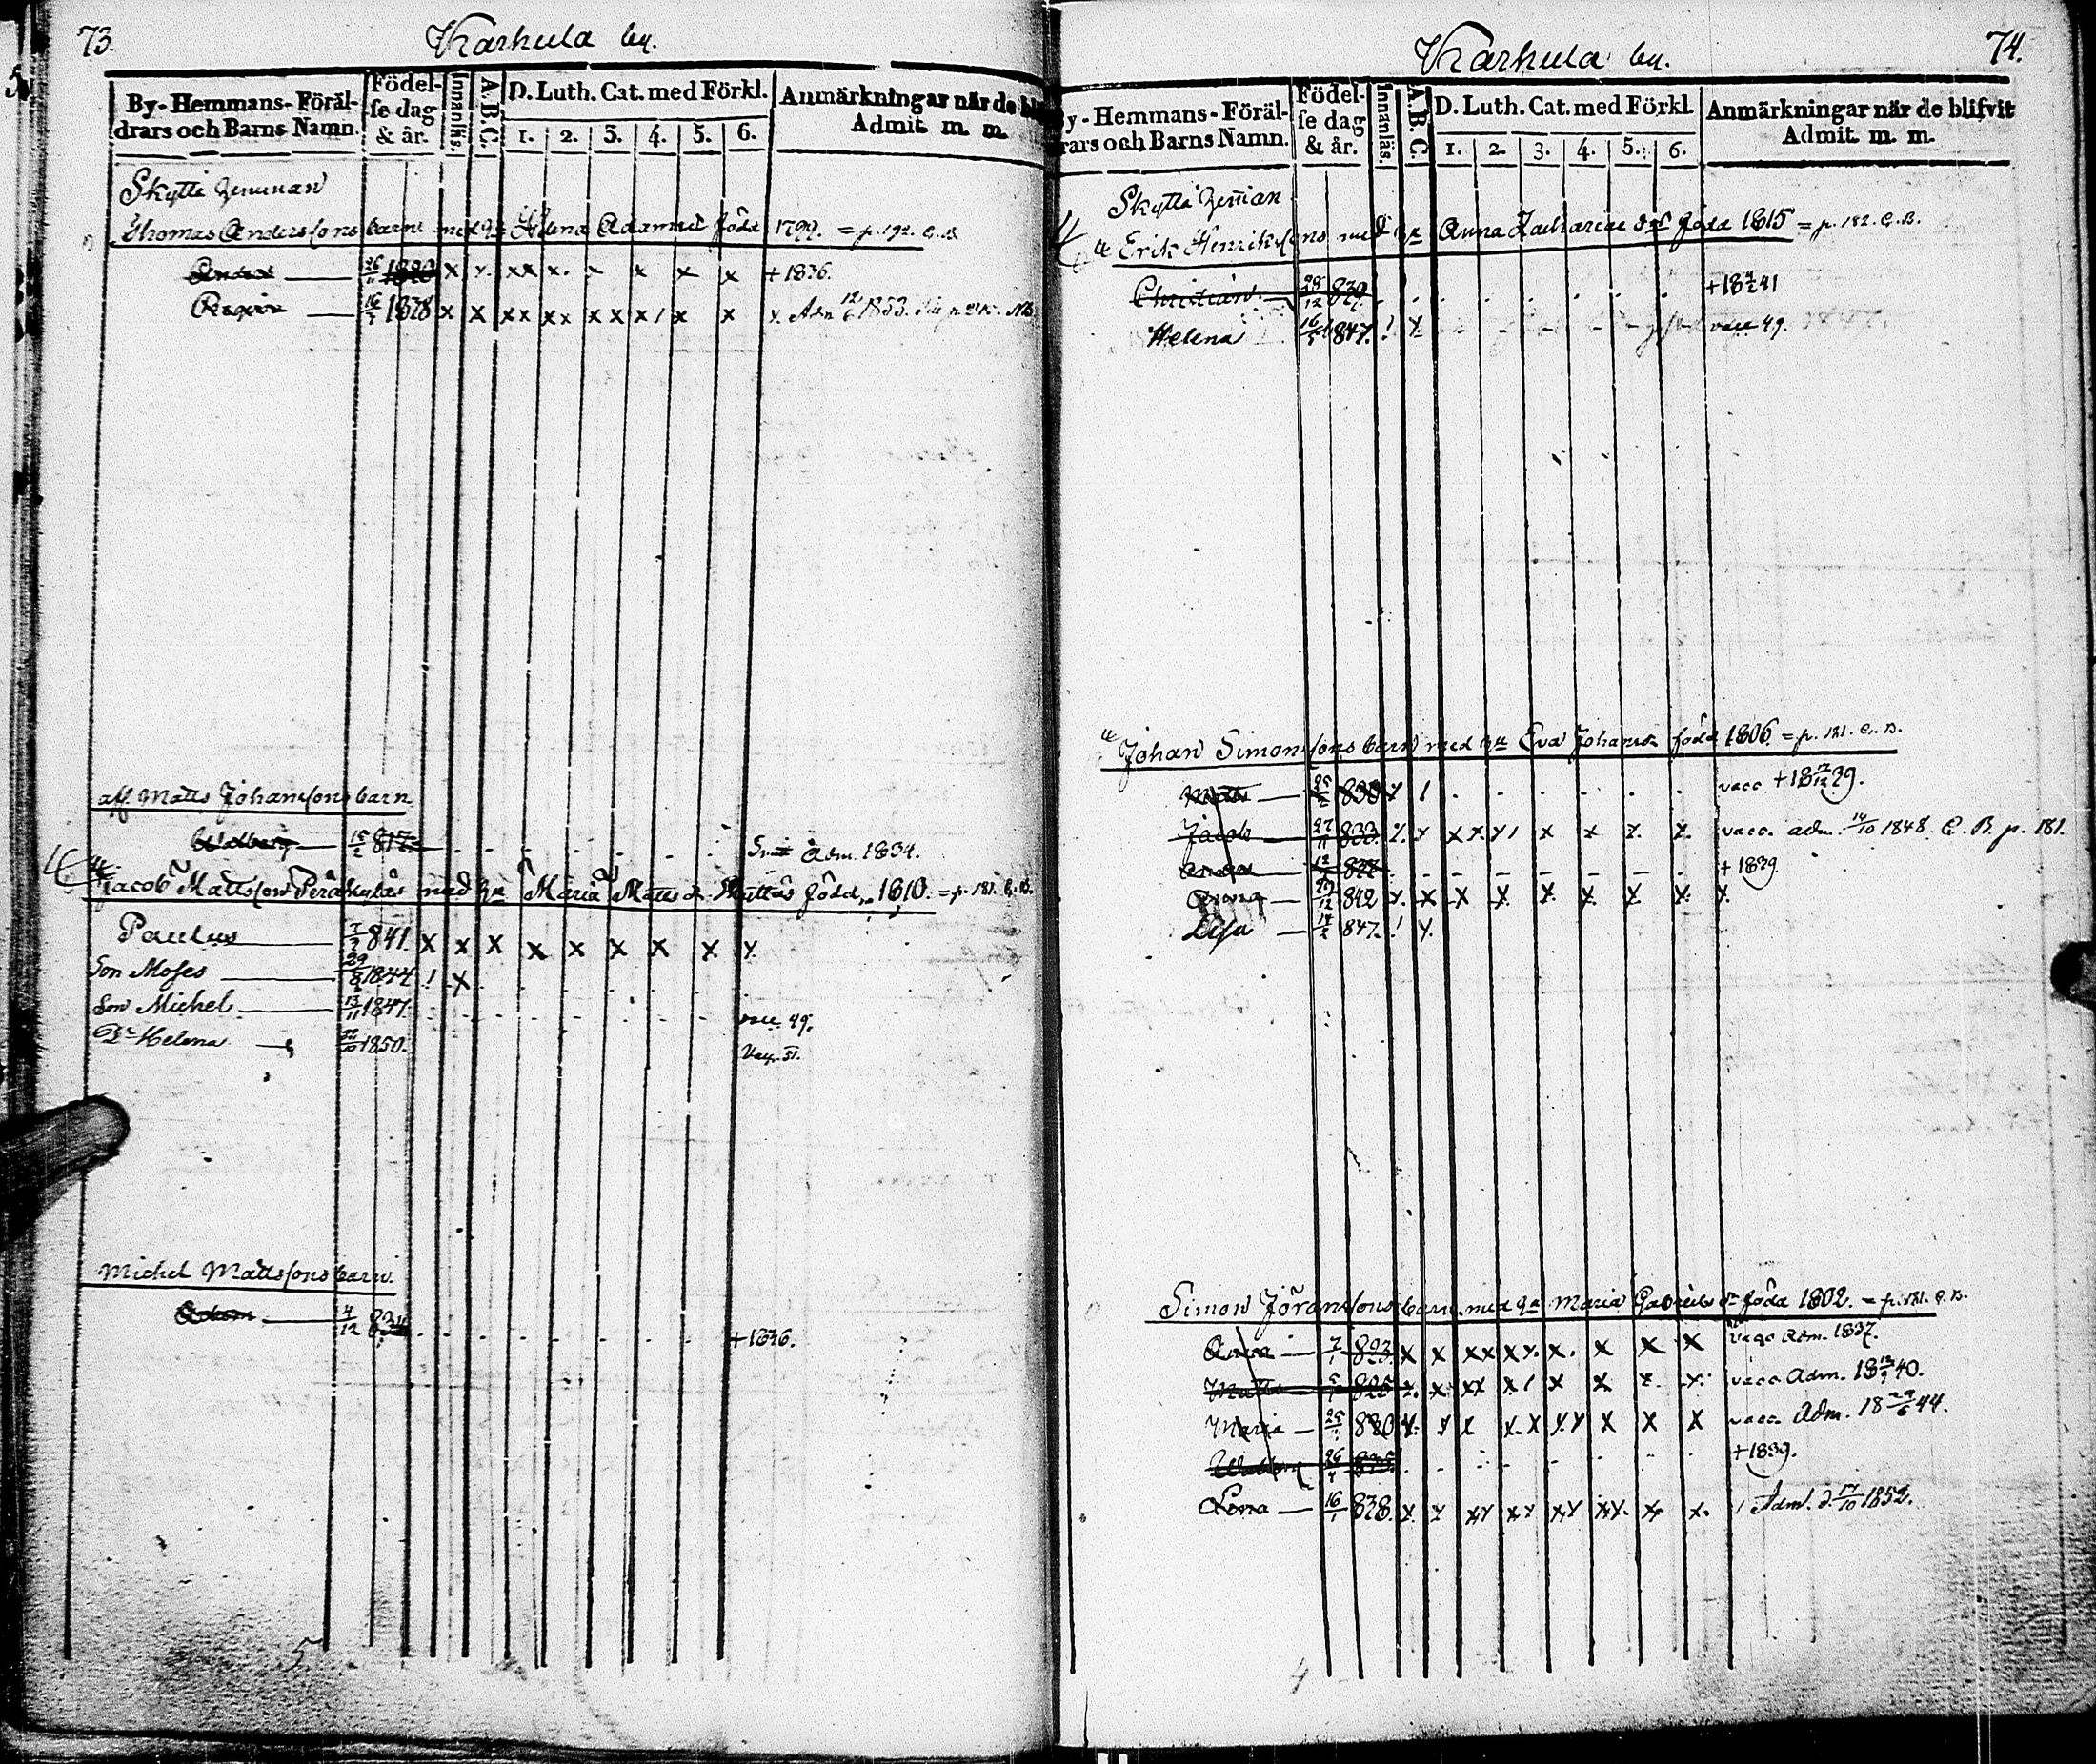 73.
Karkula by.
By-Hemmans-Föräl-
drars och Barns Namn.
Födel-
se dag
& år.
Innanläs.
A.B.C.
D. Luth. Cat. med Förkl.
1. 2. 3. 4. 5. 6.
Anmärkningar när de
Admit. m. m.
Skyttä Hemman
Thomas Anderssons barn med h:u Helena Adamsd: född 1799. = p. 192. C.B.
26/11 1820 x x. xx x. x x x x + 1836.
16/7 1838 x x xx xx xx x/ x x x. Adm 12/6 1853.
aff. Matts Johanssons barn
Walborg 15/2 817. Adm. 1834.
Jacob Mattsson med h:u Maria Matts d. född 1810. = p. 181. C.B.
Paulus 841. x x x x x x x x x.
Son Moses 29/8 1844 ! x
Son Michel 13/11 1847. vacc. 49.
D:r Helena 1850. Vacc. 51.
Michel Mattssons barn.
Adam 4/12 834 +1836.
5
74.
Karkula by.
By-Hemmans-Föräl-
drars och Barns Namn.
Födel-
se dag
& år.
Innanläs.
A.B.C.
D. Luth. Cat. med Förkl.
1. 2. 3. 4. 5. 6.
Anmärkningar när de blifvit
Admit. m. m.
Skyttä Hem̄an
Erik Henrikssons med h:u Anna Zachariae d:r föda 1815 = p. 182. C.B.
Christian 28/12 839. +18 41
Helena 16/5 1847. ! x. vacc 49.
Johan Simonssons barn med h:u Eva Johansd: född 1806. = p. 181. C.B.
Matts 25/2 830 x / vacc +18 39.
Jacob 27/11 833. x. x x x. x/ x x x. x. vacc. adm. 14/10 1848. C.B. p. 181.
+ 1839.
Anna 29/12 842 x. x x x. x. x. x. x. x.
Lisa 14/2 847. ! x.
Simon Jöranssons barn med h:u Maria Gabriels d:r föda 1802. = p. 181. C.B.
7/1 823. x x xx x x. x. x x x vacc Adm. 1837.
Matts 825 x. x. xx x/ x x x. x. vacc Adm. 18 40.
Maria 25/ 830 x. x x x. x x. x x x x vacc. Adm. 18 29/6 44.
Walborg 26/4 835. +1839.
Lena 16/1 838. x. x x x x x x x xx. x. x. / Adm. d. 17/10 1852.
4